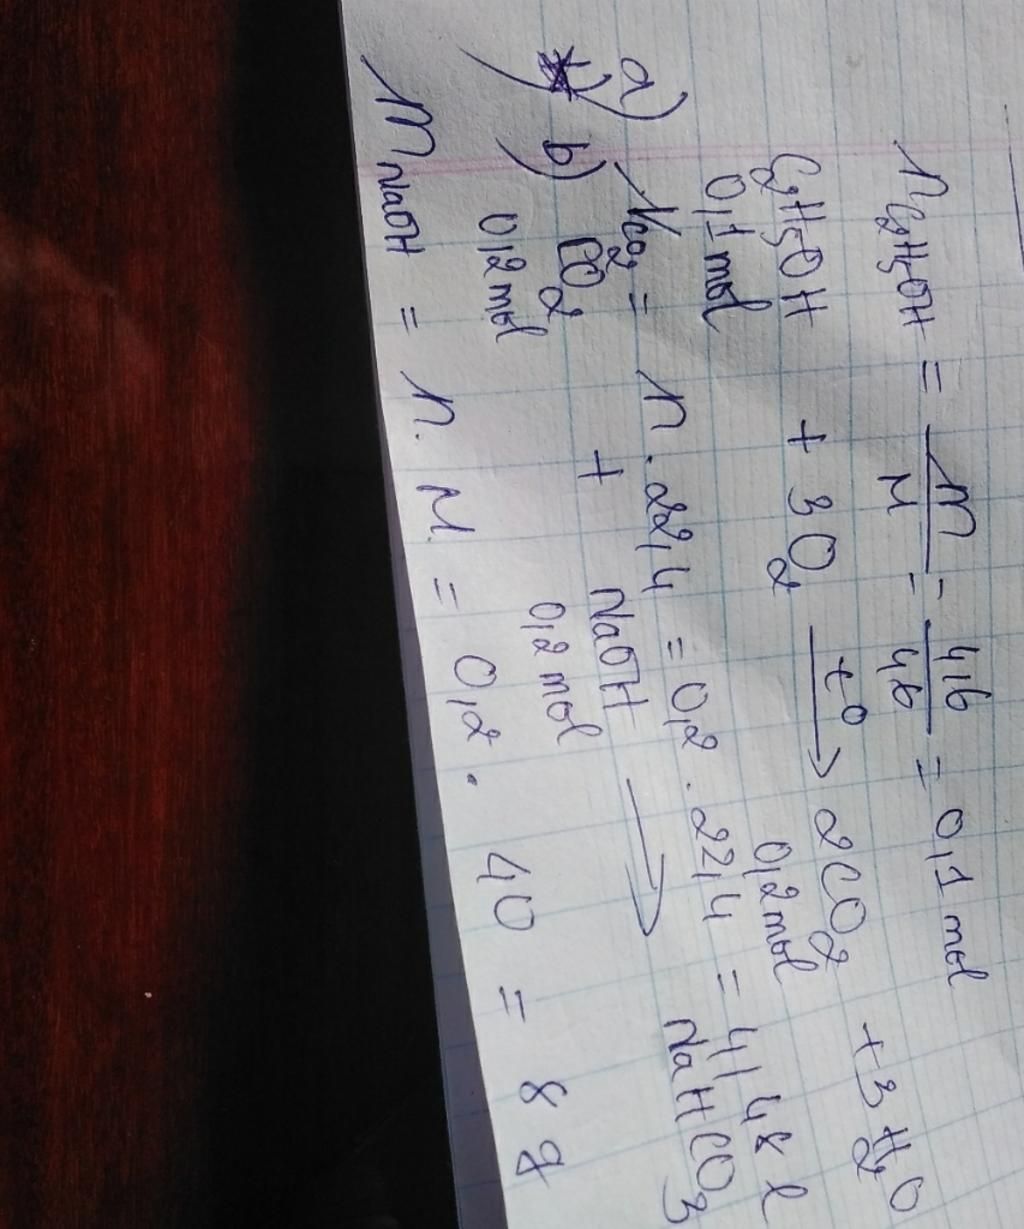 n C₂H₅OH = m/M = 4,6/4,6 = 0,1 mol
C₂H₅OH + 3O₂ —t⁰→ 2CO₂ + 3H₂O
0,1 mol 0,2 mol
a) V CO₂ = n . 22,4 = 0,2 . 22,4 = 4,48 l
b) CO₂ + NaOH → NaHCO₃
0,2 mol 0,2 mol
m NaOH = n . M = 0,2 . 40 = 8